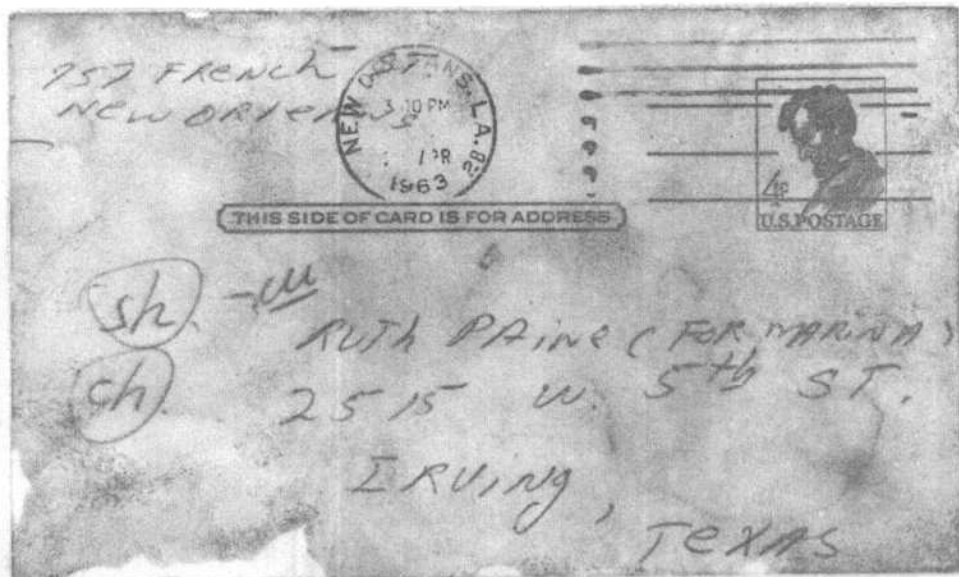 757 FRENCH ST
NEW ORLEANS
NEW ORLEANS, LA.
PM
APR
1963
4¢
U.S. POSTAGE
THIS SIDE OF CARD IS FOR ADDRESS
sh. - ш
ch.
RUTH PAINE (FOR MARINA)
2515 W. 5th ST.
IRVING,
TEXAS